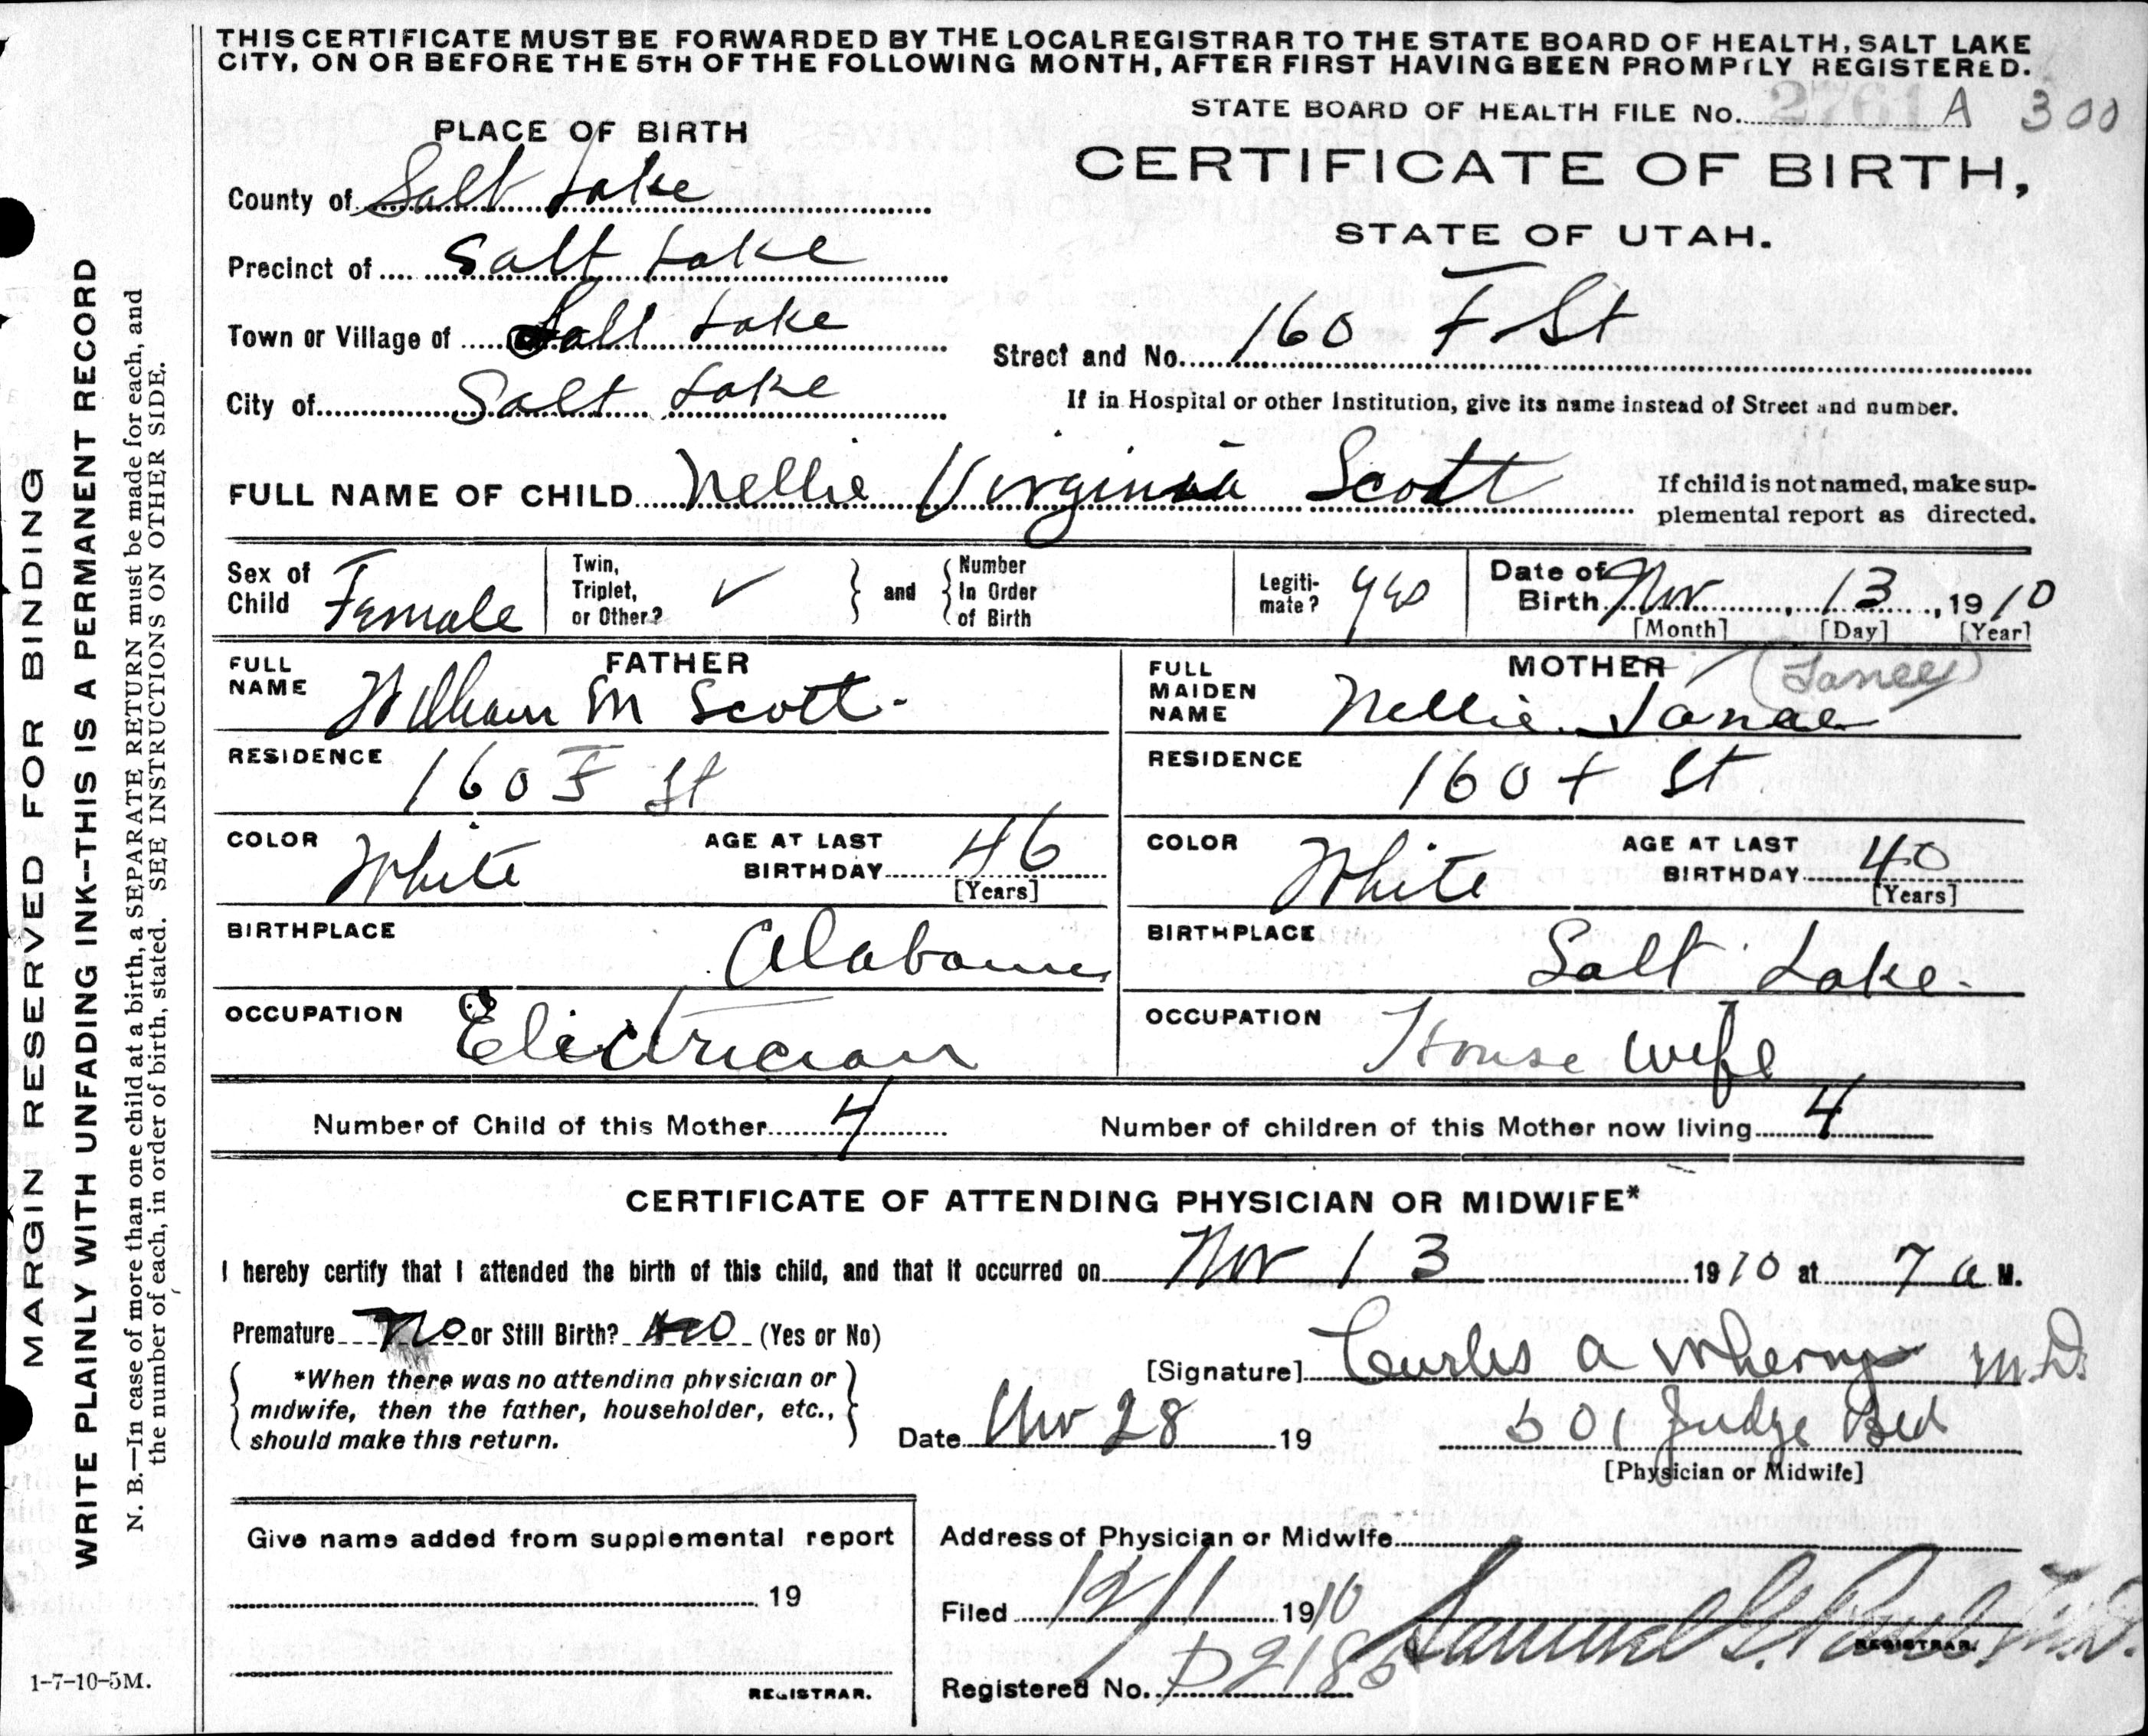 THIS CERTIFICATE MUST BE FORWARDED BY THE LOCAL REGISTRAR TO THE STATE BOARD OF HEALTH, SALT LAKE
CITY, ON OR BEFORE THE 5TH OF THE FOLLOWING MONTH, AFTER FIRST HAVING BEEN PROMPTLY REGISTERED.
STATE BOARD OF HEALTH FILE No. 2761 A 300
PLACE OF BIRTH
CERTIFICATE OF BIRTH,
STATE OF UTAH.
County of Salt Lake
Precinct of Salt Lake
Town or Village of Salt Lake
Street and No. 160 F St
City of Salt Lake
If in Hospital or other Institution, give its name instead of Street and number.
FULL NAME OF CHILD Nellie Virginia Scott
If child is not named, make sup-
plemental report as directed.
Sex of Child Female
Twin, Triplet, or Other? ✓ and Number In Order of Birth
Legiti-mate? yes
Date of Birth Nov, 13, 1910
[Month] [Day] [Year]
FATHER
FULL NAME William M Scott
RESIDENCE 160 F St
COLOR White
AGE AT LAST BIRTHDAY 46
[Years]
BIRTHPLACE Alabama
OCCUPATION Electrician
MOTHER
FULL MAIDEN NAME Nellie
RESIDENCE 160 F St
COLOR White
AGE AT LAST BIRTHDAY 40
[Years]
BIRTHPLACE Salt Lake
OCCUPATION House wife
Number of Child of this Mother 4
Number of children of this Mother now living 4
CERTIFICATE OF ATTENDING PHYSICIAN OR MIDWIFE*
I hereby certify that I attended the birth of this child, and that it occurred on Nov 13 1910 at 7 a M.
Premature No or Still Birth? No (Yes or No)
[Signature] Curtis a Wherry M.D.
*When there was no attending physician or
midwife, then the father, householder, etc.,
should make this return.
Date Nov 28 19
501 Judge Bld
[Physician or Midwife]
Give name added from supplemental report
19
REGISTRAR.
Address of Physician or Midwife
Filed 12/1 1910
Samuel G. Paul M.D.
REGISTRAR.
Registered No. D2186
1-7-10-5M.
MARGIN RESERVED FOR BINDING
WRITE PLAINLY WITH UNFADING INK--THIS IS A PERMANENT RECORD
N. B.—In case of more than one child at a birth, a SEPARATE RETURN must be made for each, and
the number of each, in order of birth, stated. SEE INSTRUCTIONS ON OTHER SIDE.